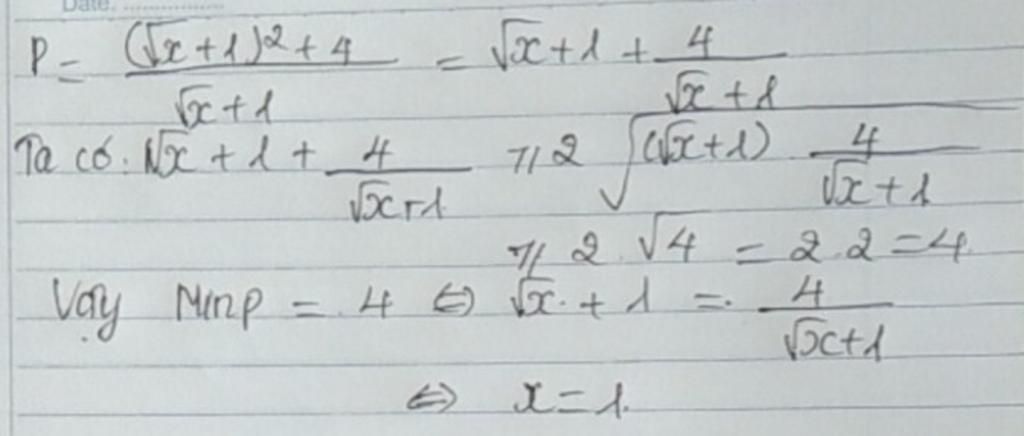 Date:
P = ((√x+1)²+4)/(√x+1) = √x+1 + 4/(√x+1)
Ta có: √x+1+ 4/(√x+1) ⩾ 2 √((√x+1) 4/(√x+1))
⩾ 2.√4 = 2.2 = 4.
Vậy Min P = 4 ⇔ √x + 1 = 4/(√x+1)
⇔ x = 1.